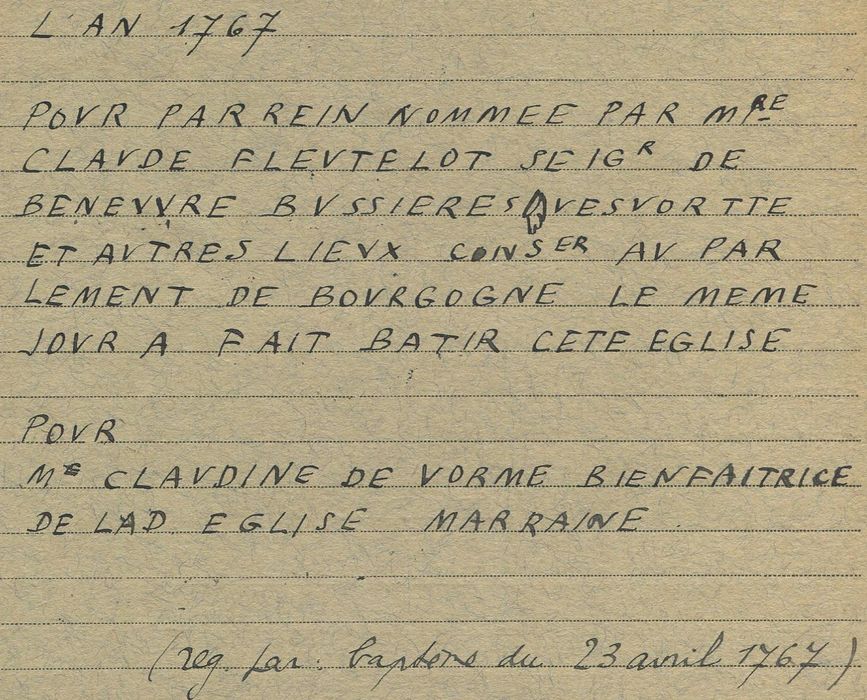 L'AN 1767
POVR PARREIN NOMMEE PAR MRE
CLAVDE FLEVTELOT SEIGR DE
BENEVVRE BVSSIERES AVESVORTTE
ET AVTRES LIEVX CONSER AV PAR
LEMENT DE BOVRGOGNE LE MEME
JOVR A FAIT BATIR CETE EGLISE
POVR
ME CLAVDINE DE VORME BIENFAITRICE
DE LAD. EGLISE MARRAINE.
(reg. par. baptême du 23 avril 1767)